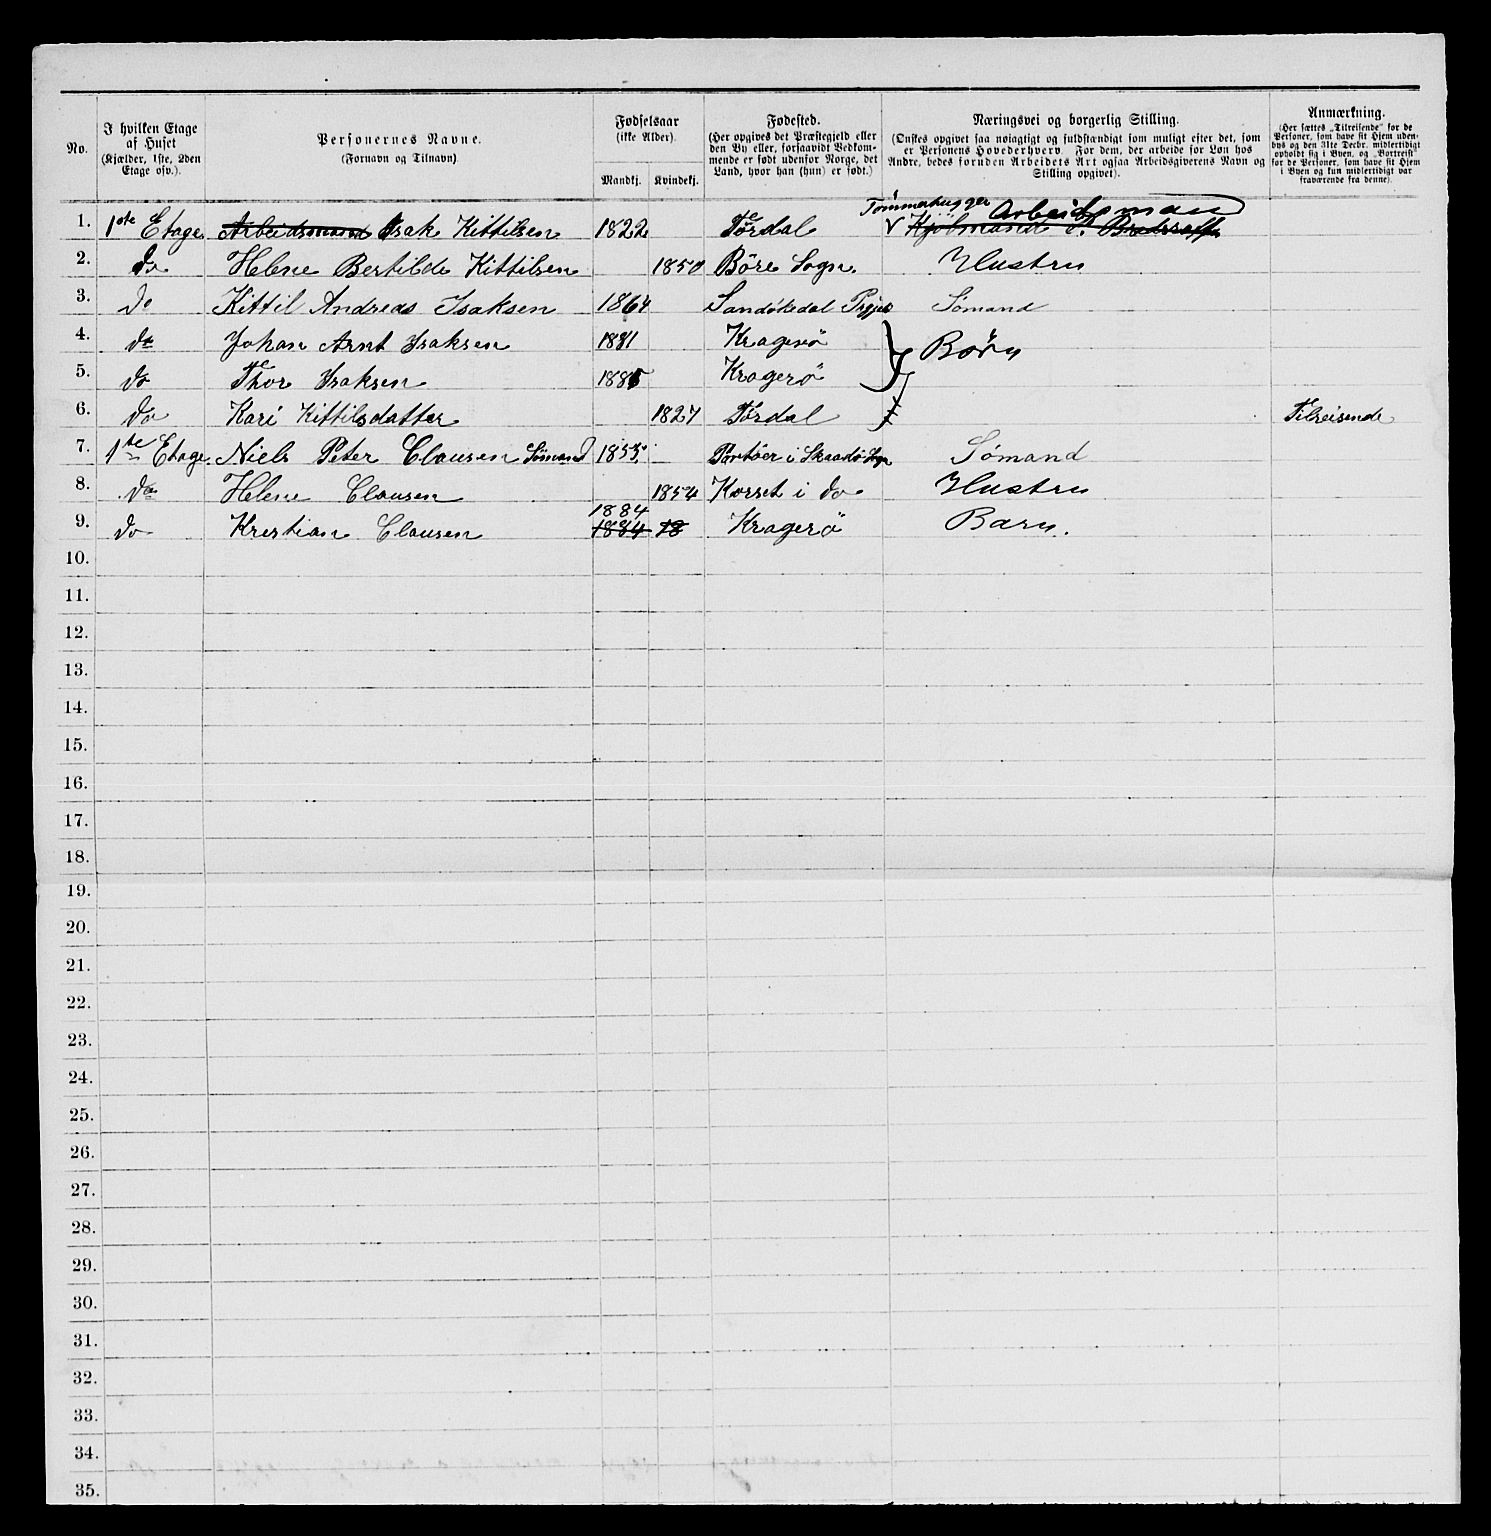 No. | I hvilken Etage af Huset (Kjælder, 1ste, 2den Etage osv.). | Personernes Navne. (Fornavn og Tilnavn) | Fødselsaar (ikke Alder). Mandkj. | Kvindekj. | Fødested. (Her opgives det Præstegjeld eller den By eller, forsaavidt Vedkommende er født udenfor Norge, det Land, hvor han (hun) er født.) | Næringsvei og borgerlig Stilling. (Ønskes opgivet saa nøiagtigt og fuldstændigt som muligt efter det, som er Personens Hovederhverv. For dem, der arbeide for Løn hos Andre, bedes foruden Arbeidets Art ogsaa Arbeidsgiverens Navn og Stilling opgivet). | Anmærkning. (Her sættes „Tilreisende“ for de Personer, som have sit Hjem udenbys og den 31te Decbr. midlertidigt opholdt sig i Byen, og „Bortreist“ for de Personer, som have sit Hjem i Byen og kun midlertidigt var fraværende fra denne).
Tømmerhugger Arbeidsmand
1. 1ste Etage Arbeidsmand Isak Kittilsen 1822 Tørdal
2. do Helene Bertilde Kittilsen 1850 Børe Sogn. Hustru
3. do Kittil Andreas Isaksen 1864 Sandøkedal Sømand
4. do Johan Arnt Isaksen 1881 Kragerø Børn
5. do Thor Isaksen 1885 Kragerø
6. do Kari Kittilsdatter 1827 Tørdal Tilreisende
7. 1ste Etage. Niels Peter Clausen Sømand 1855 i Skaadø Sogn Sømand
8. do Helene Clausen 1854 Korset i do Hustru
1884
9. do Krestian Clausen 1884 18 Kragerø Barn.
10.
11.
12.
13.
14.
15.
16.
17.
18.
19.
20.
21.
22.
23.
24.
25.
26.
27.
28.
29.
30.
31.
32.
33.
34.
35.